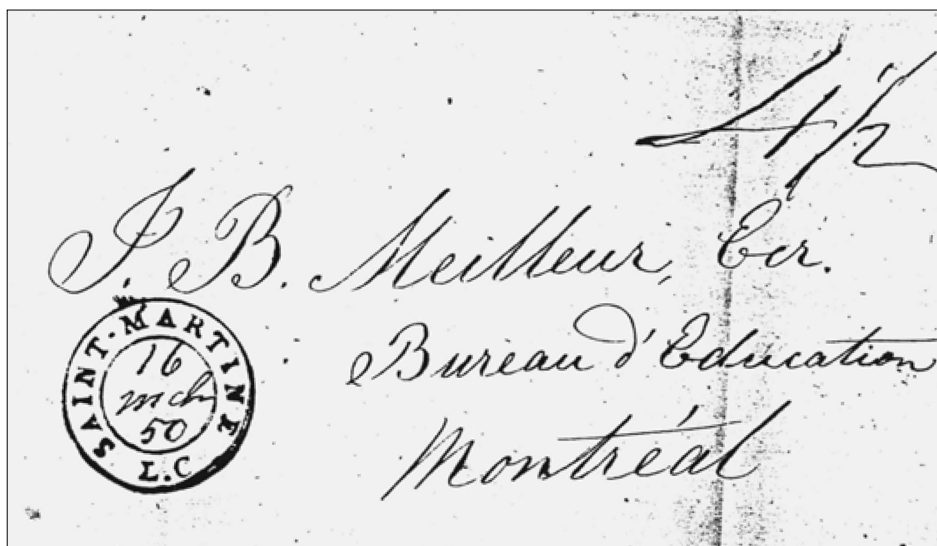 4 1/2
J. B. Meilleur, Ecr.
Bureau d'Education
Montréal
SAINT-MARTINE
16
mch
50
L.C